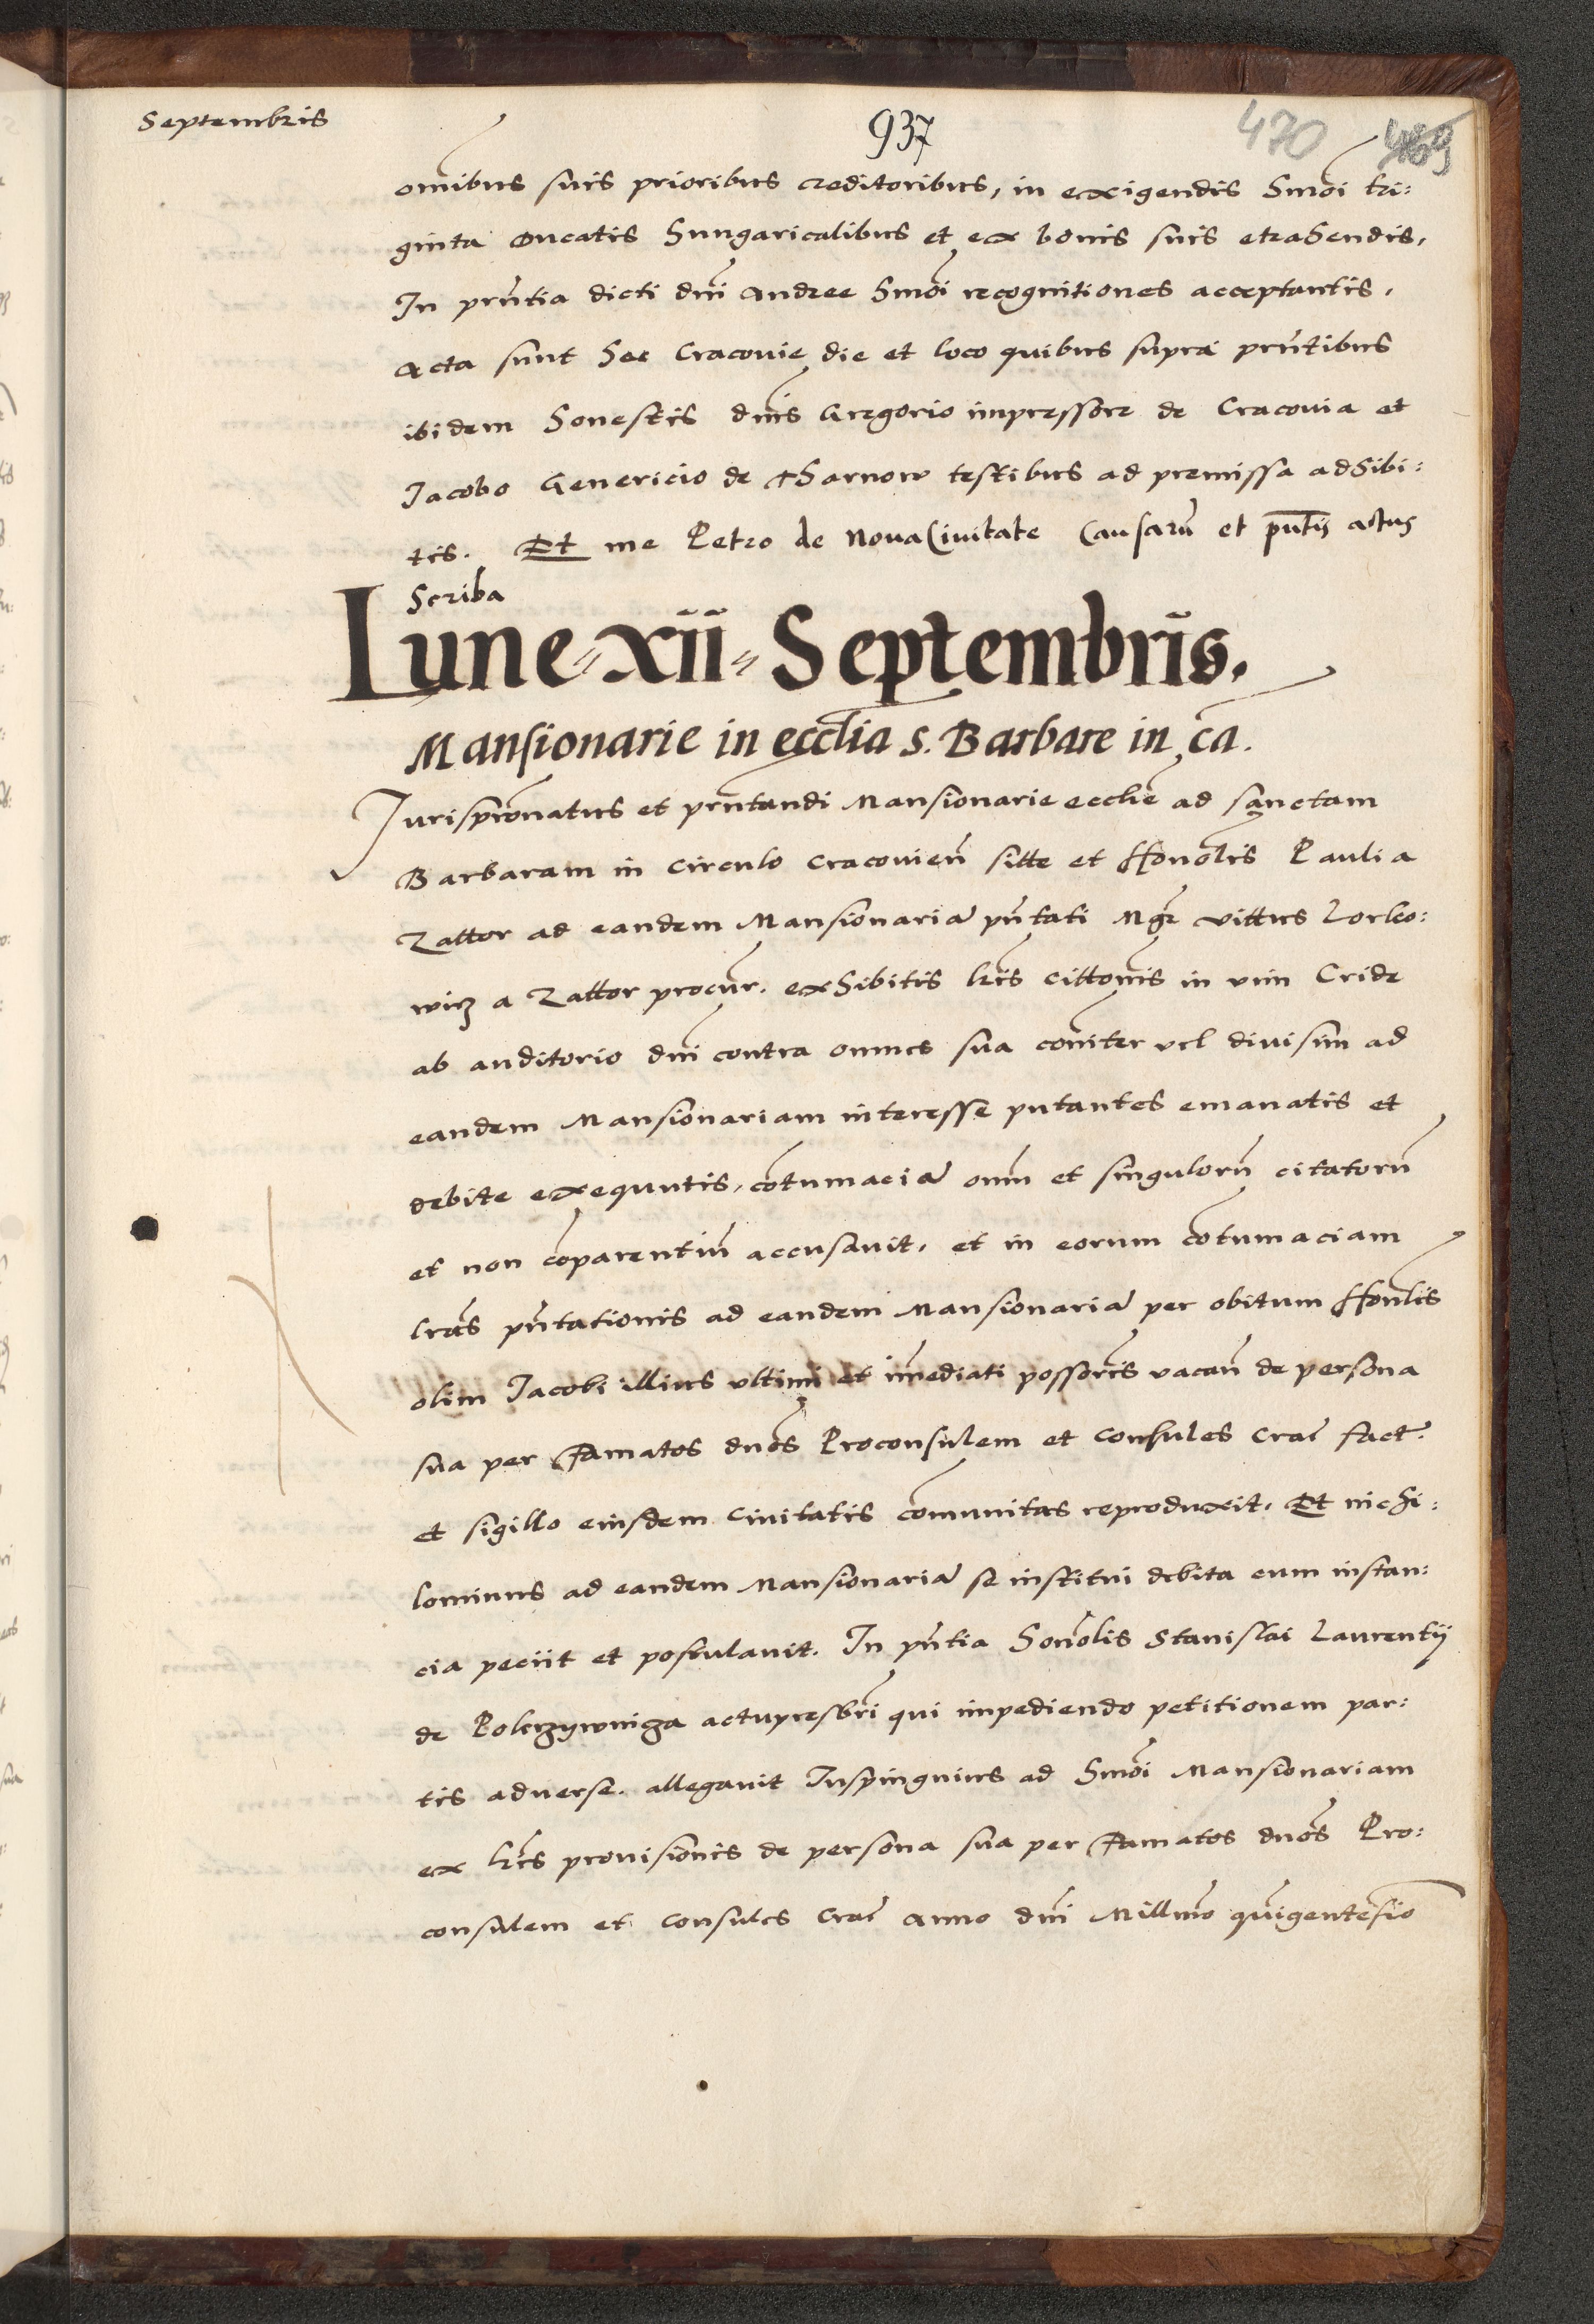 Septembris
937
470 469
om̄ibus suis prioribus creditoribus, in exigendis hmōi tri:
ginta ducatis hungaricalibus et ex bonis suis etrahendis,
In prn̄tia dicti dn̄i Andree hmōi recognitiones acceptantis,
Acta sunt hec Cracovie die et loco quibus supra prn̄tibus
ibidem honestis dn̄is Gregorio impressore de Cracovia et
Jacobo Genericio de Tharnow testibus ad premissa adhibi:
tis. Et me Petro de Nova Civitate Causarū et pn̄tis actus
Scriba
Lune xii Septembris.
Mansionarie in ecclīa s. Barbare in cā.
Jurispr̄onatus et prn̄tandi Mansionarie ecclīe ad sanctam
Barbaram in circulo Cracovien̄ sitte et Honōlis Pauli a
Zattor ad eandem Mansionariā pn̄tati Mgr̄ vittus Lorko:
wicz a Zattor procur̄. exhibitis lr̄is cittōnis in vim Cride
ab auditorio dn̄i contra omnes sua com̄iter vel divisim ad
eandem Mansionariam interesse putantes emanatis et
debite exequutis, cōtumaciā omn̄i et singulorū citatorū
et non cōparentiū accusavit, et in eorum cōtumaciam
lrās pn̄tationis ad eandem Mansionariā per obitum Honlis
olim Jacobi illius ultimi et im̄ediati possorīs vacan̄ de persona
sua per Famatos dnōs Proconsulem et consules Crac̄ fact̄.
et sigillo eiusdem civitatis cōmunitas reproduxit, Et nichi:
lominus ad eandem Mansionariā se institui debita cum instan:
cia peciit et postulavit. In pn̄tia honōlis Stanislai Laurentij
de actupresbr̄i qui impediendo petitionem par:
tis adverse. allegavit Juspinguius ad hmōi Mansionariam
ex lr̄is provisionis de persona sua per Famatos dnōs Pro:
consulem et consules Crac̄ Anno dn̄i Millm̄o quīgentesīo